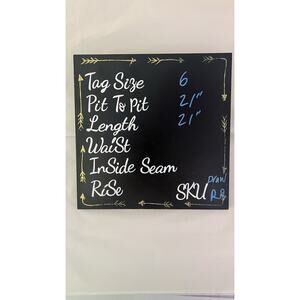 Tag Size 6
Pit To Pit 21"
Length 21"
Waist
Inside Seam
Rise SKU